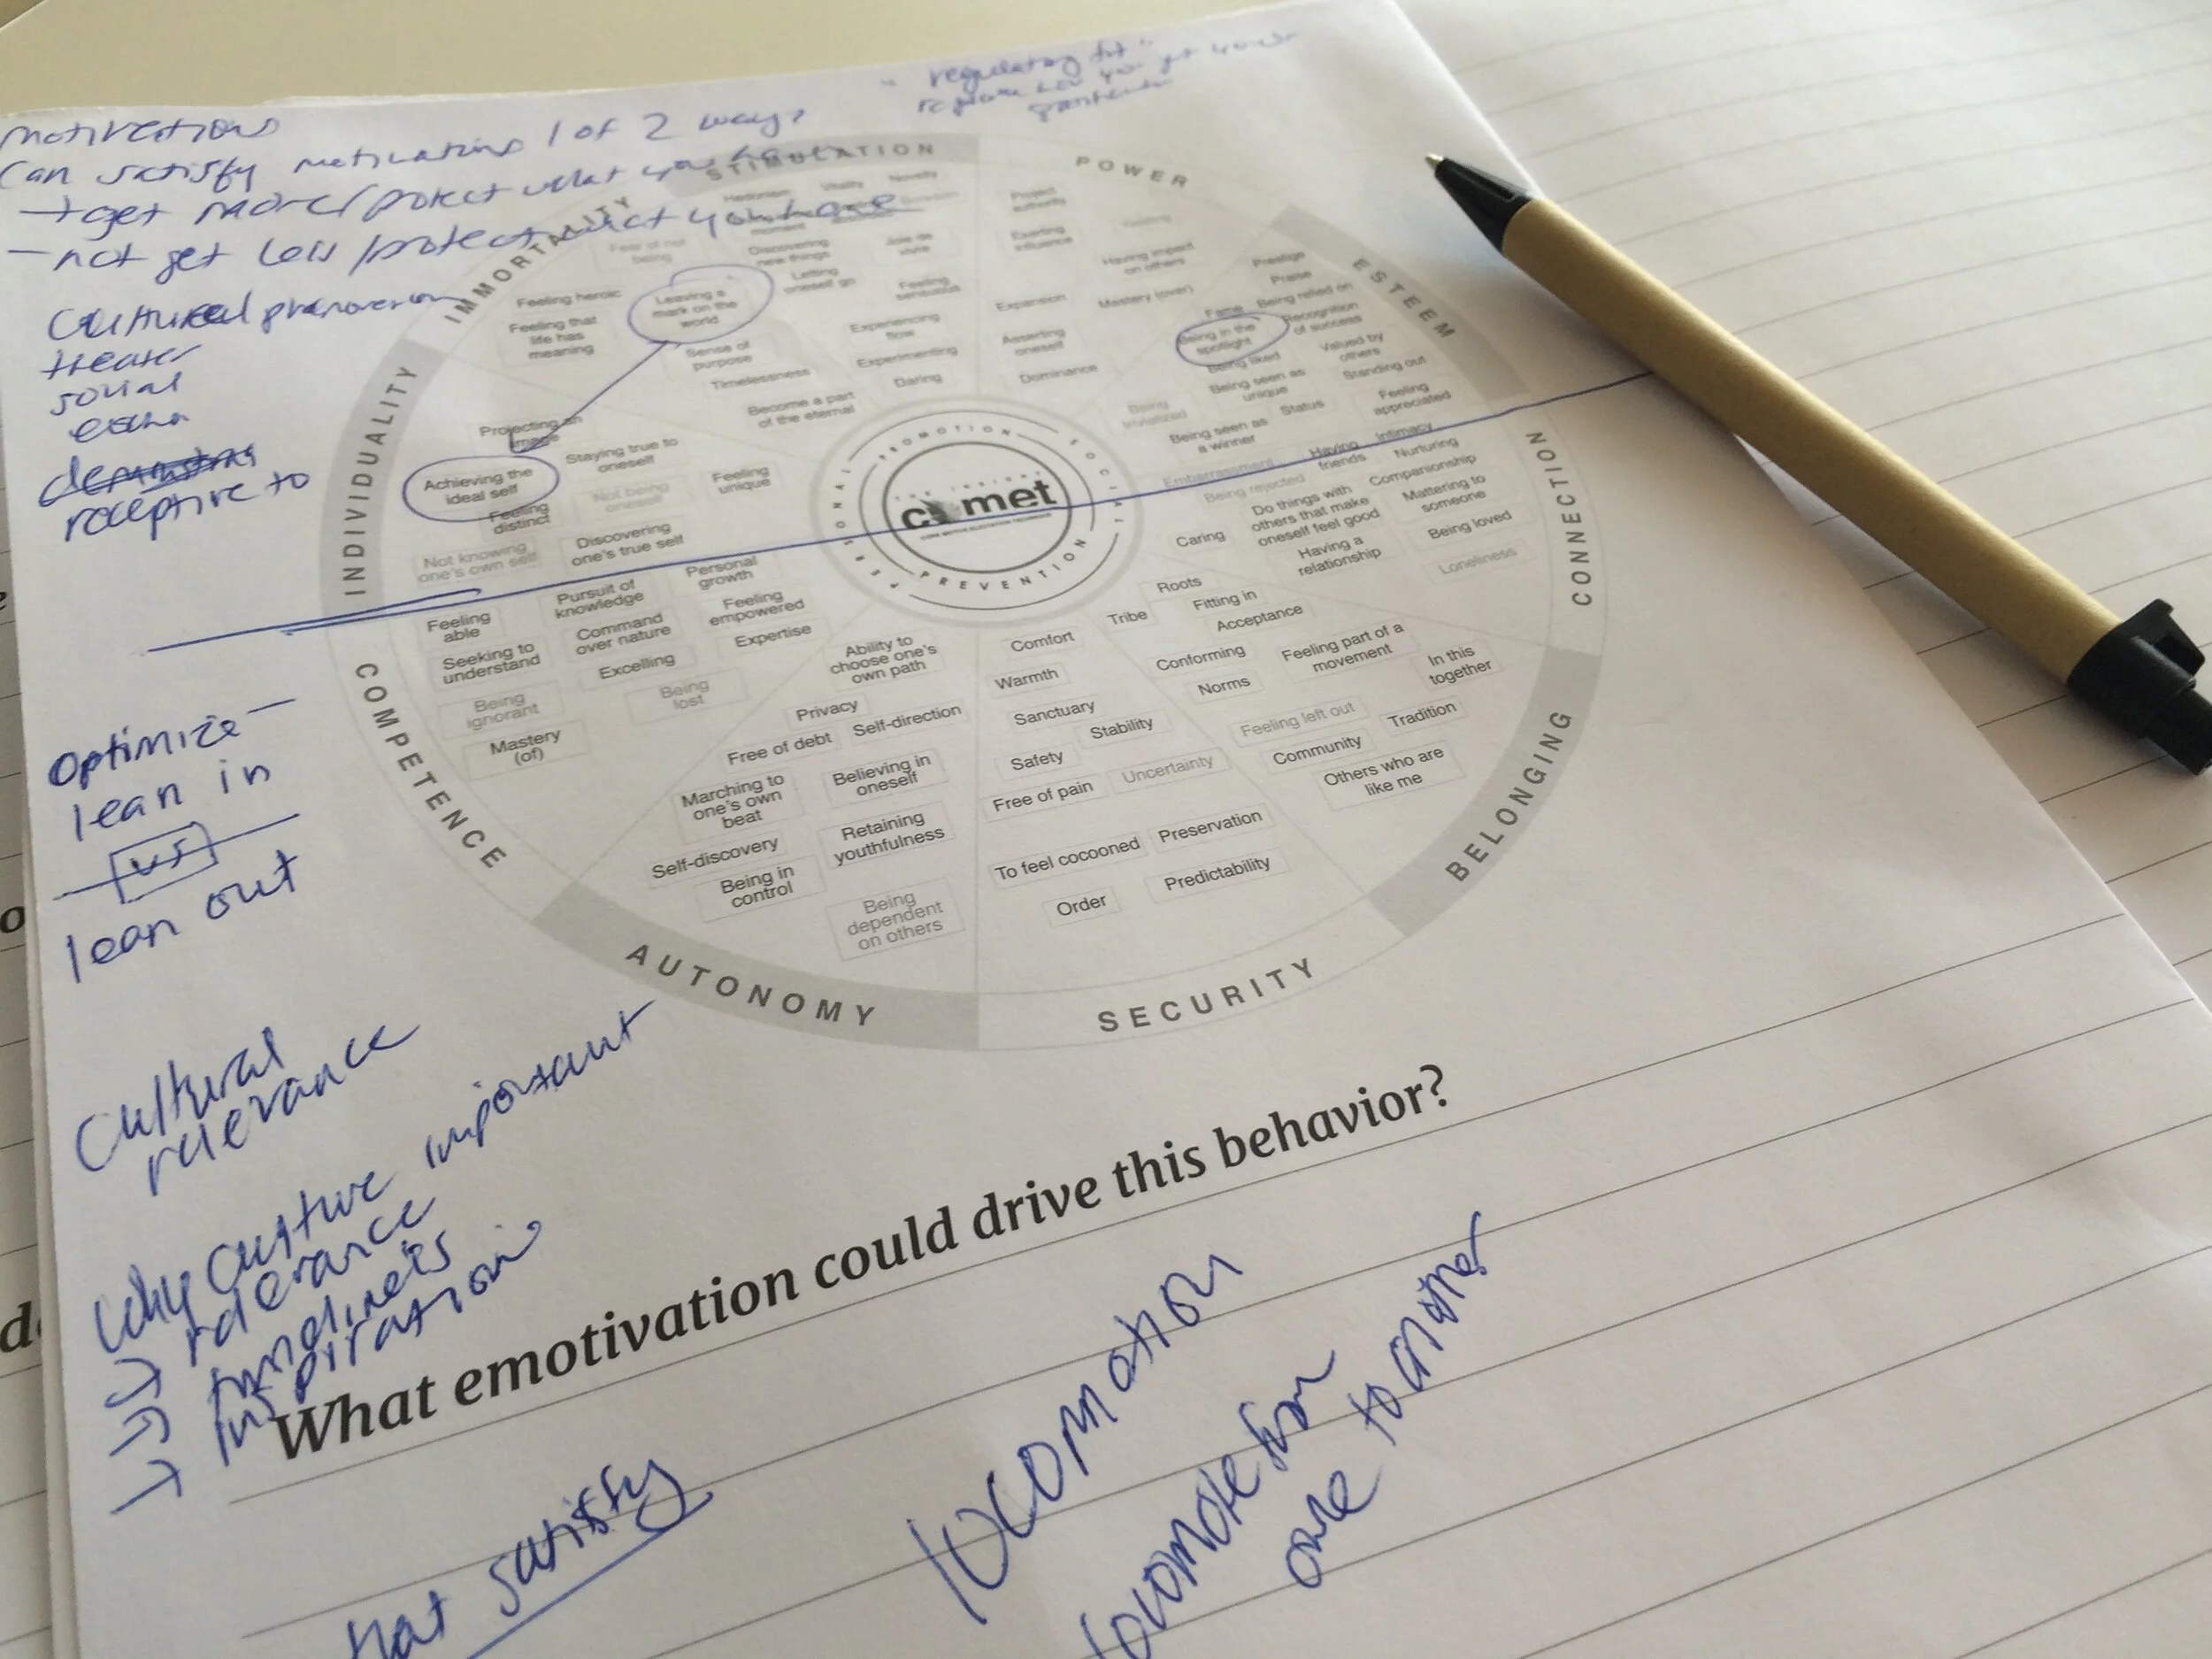 "regulatory fit"
motivations
Can satisfy motivations 1 of 2 ways
→ get more/protect what you have
— not get less/protect what you have
Cultural phenomenon
theater
social
receptive to
Optimize —
lean in
vs
lean out
Cultural
relevance
Why culture important
→ relevance
→ timeliness
→ inspiration
STIMULATION
Hedonism
Vitality
Novelty
moment
Discovering
new things
Joie de
vivre
Letting
oneself go
Feeling
sensuous
Experiencing
flow
Experimenting
Daring
POWER
Project
authority
Exerting
influence
Having impact
on others
Expansion
Mastery (over)
Asserting
oneself
Dominance
ESTEEM
Prestige
Praise
Fame
Being relied on
Being in the
spotlight
Recognition
of success
Being liked
Valued by
others
Being seen as
unique
Standing out
Being
trivialized
Status
Feeling
appreciated
Being seen as
a winner
Embarrassment
CONNECTION
Having
friends
Intimacy
Nurturing
Being rejected
Companionship
Do things with
others that make
oneself feel good
Mattering to
someone
Caring
Having a
relationship
Being loved
Loneliness
BELONGING
Roots
Tribe
Fitting in
Acceptance
Conforming
Feeling part of a
movement
Norms
In this
together
Feeling left out
Tradition
Community
Others who are
like me
SECURITY
Comfort
Warmth
Sanctuary
Stability
Safety
Uncertainty
Free of pain
To feel cocooned
Preservation
Order
Predictability
AUTONOMY
Ability to
choose one's
own path
Privacy
Self-direction
Free of debt
Marching to
one's own
beat
Believing in
oneself
Self-discovery
Retaining
youthfulness
Being in
control
Being
dependent
on others
COMPETENCE
Personal
growth
Pursuit of
knowledge
Feeling
able
Feeling
empowered
Command
over nature
Seeking to
understand
Expertise
Excelling
Being
ignorant
Being
lost
Mastery
(of)
INDIVIDUALITY
Projecting an
image
Staying true to
oneself
Achieving the
ideal self
Not being
oneself
Feeling
unique
Feeling
distinct
Not knowing
one's own self
Discovering
one's true self
IMMORTALITY
Fear of not
being
Feeling heroic
Leaving a
mark on the
world
Feeling that
life has
meaning
Sense of
purpose
Timelessness
Become a part
of the eternal
PROMOTION
SOCIAL
PREVENTION
PERSONAL
comet
What emotivation could drive this behavior?
satisfy
locomotion
locomote from
one to another